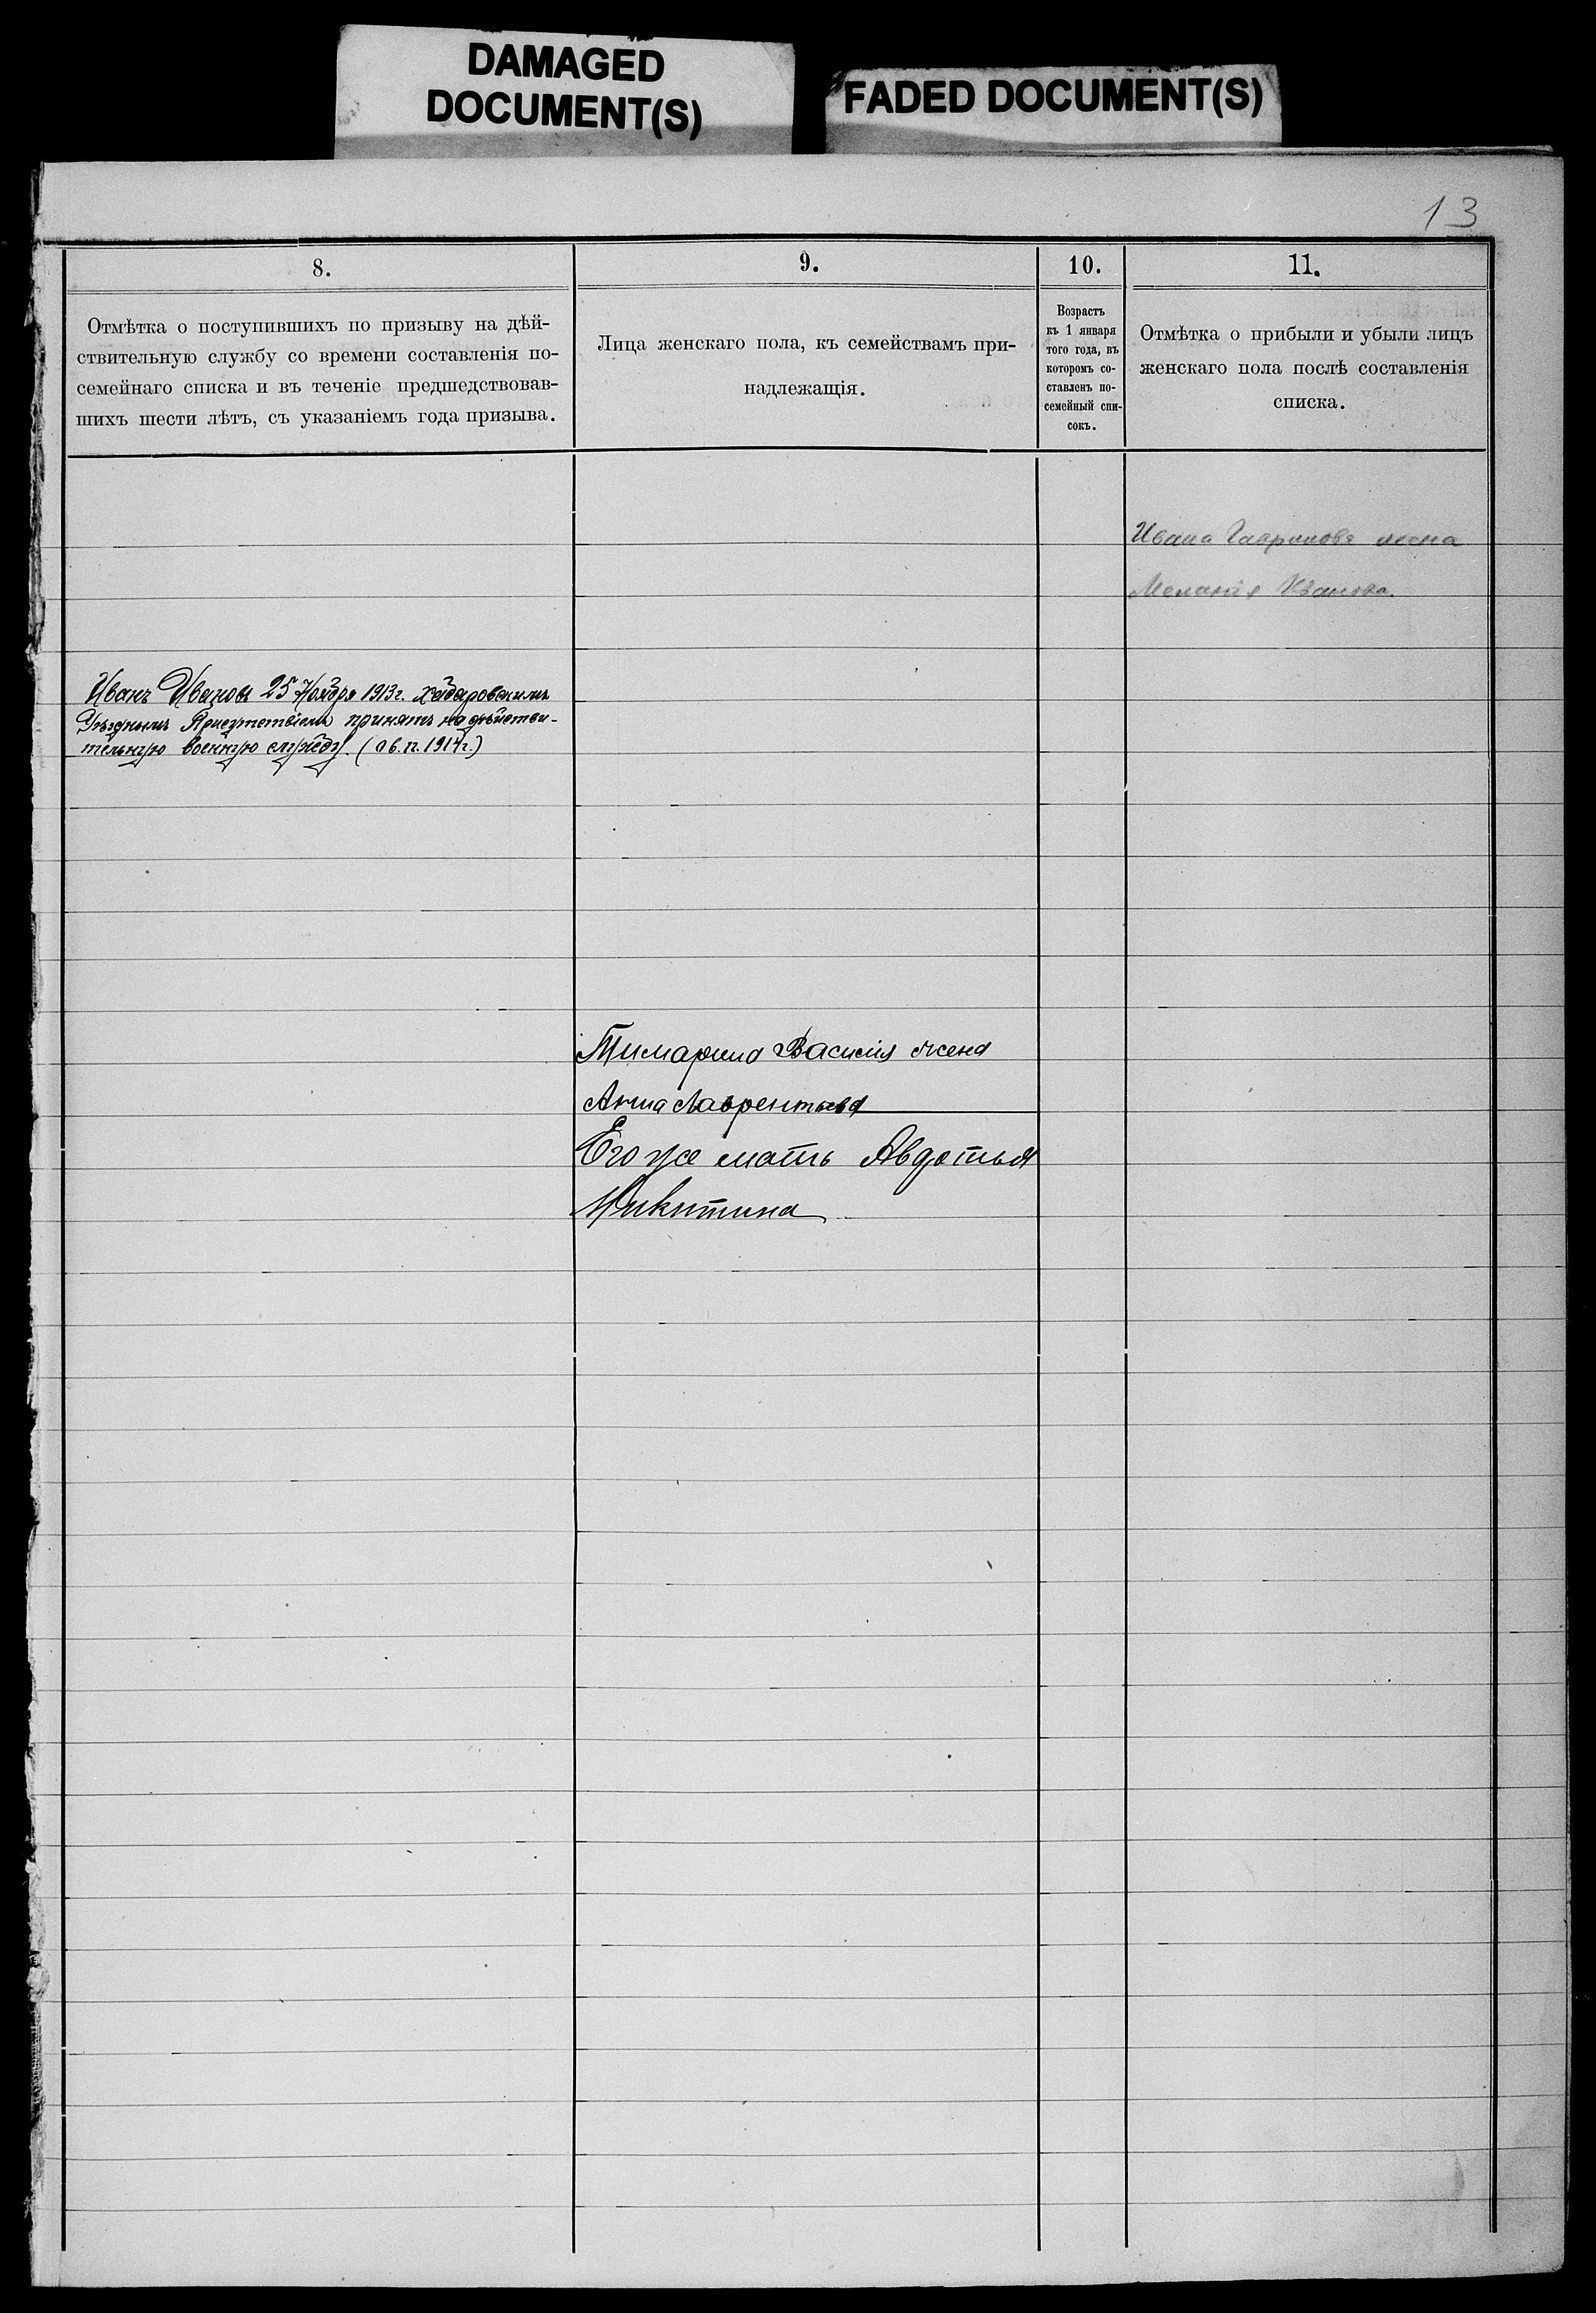 DAMAGED
DOCUMENT(S)
FADED DOCUMENT(S)
13
8.
Отмѣтка о поступившихъ по призыву на дѣй-
ствительную службу со времени составленія по-
семейнаго списка и въ теченіе предшедствовав-
шихъ шести лѣтъ, съ указаніемъ года призыва.
9.
Лица женскаго пола, къ семействамъ при-
надлежащія.
10.
Возрастъ
къ 1 января
того года, въ
которомъ со-
ставленъ по-
семейный спи-
сокъ.
11.
Отмѣтка о прибыли и убыли лицъ
женскаго пола послѣ составленія
списка.
Ивана Гаврилова жена
Меланія Иванова.
Иванъ Ивановъ 25 Ноября 1913 г.
Уѣзднымъ Присутствіемъ принятъ на дѣйстви-
тельную военную службу. (1914 г.)
Василія жена
Анна Лаврентьева
Его же мать Авдотья
Никитина